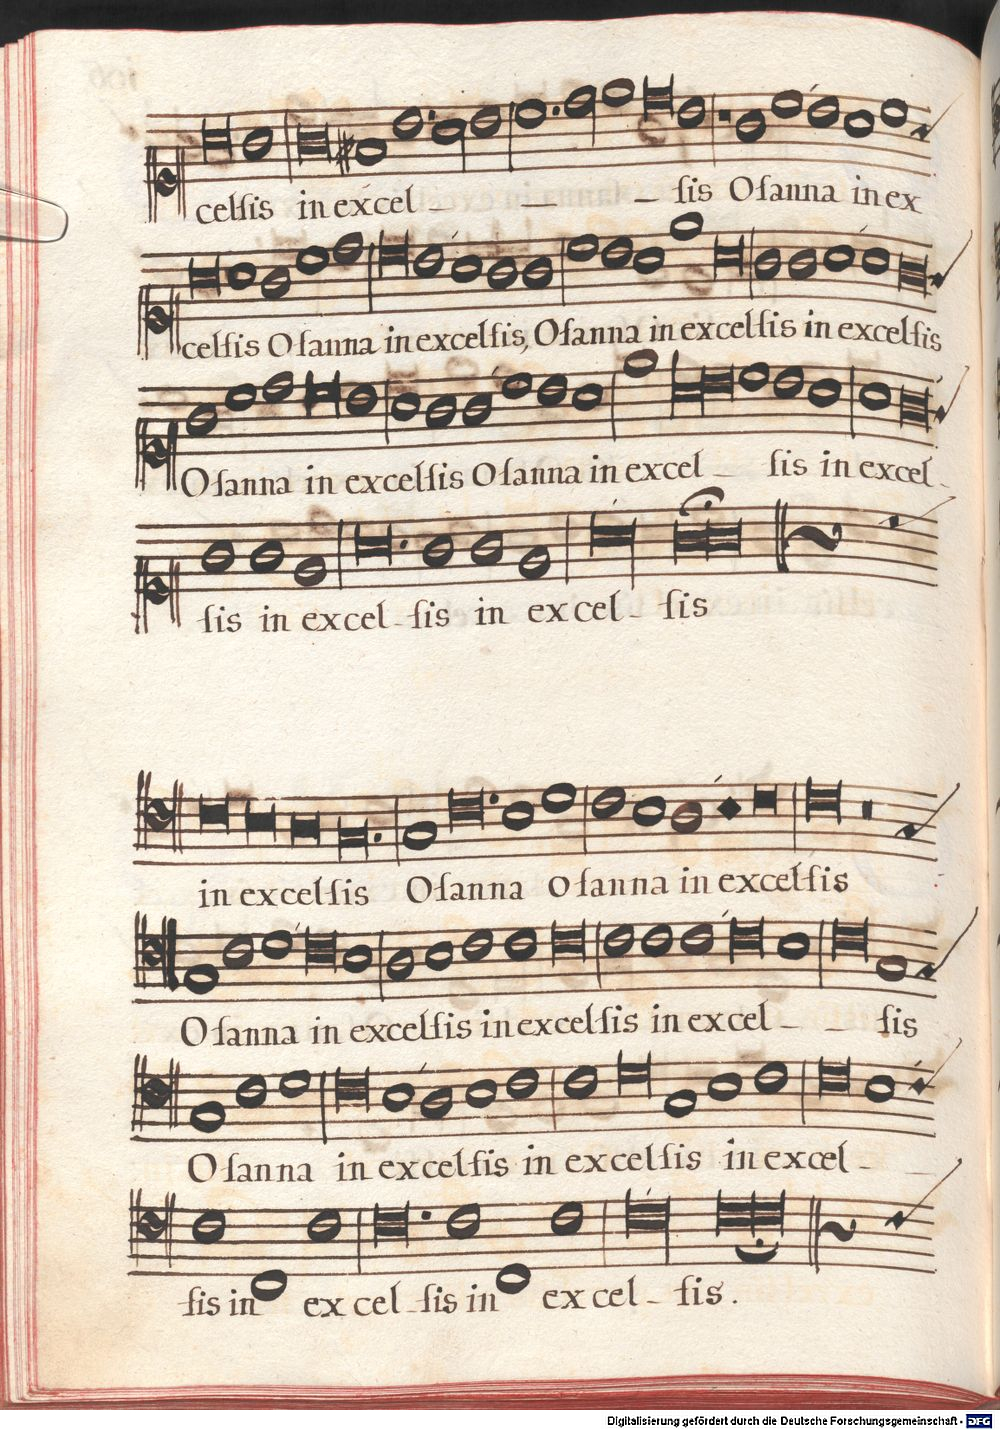 celſis in excel - - - ſis Oſanna in ex
celſis Oſanna in excelſis, Oſanna in excelſis in excelſis
Oſanna in excelſis Oſanna in excel - ſis in excel -
ſis in excel - ſis in excel - ſis
in excelſis Oſanna Oſanna in excelſis
Oſanna in excelſis in excelſis in excel - - ſis
Oſanna in excelſis in excelſis in excel - -
ſis in excel - ſis in excel - ſis.
Digitalisierung gefördert durch die Deutsche Forschungsgemeinschaft - DFG